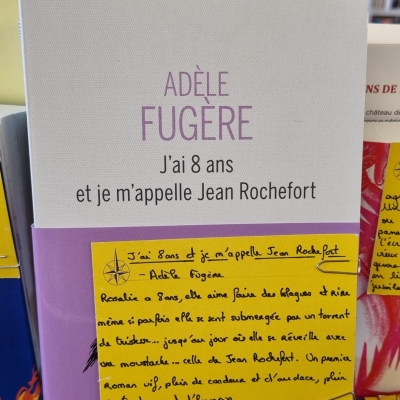 ADÈLE
FUGÈRE
J'ai 8 ans
et je m'appelle Jean Rochefort
J'ai 8 ans et je m'appelle Jean Rochefort
- Adèle Fugère
Rosalie a 8 ans, elle aime faire des blagues et rire
même si parfois elle se sent submergée par un torrent
de tristesse... jusqu'au jour où elle se réveille avec
une moustache... celle de Jean Rochefort. Un premier
roman vif, plein de candeur et d'audace, plein
NS DE
château de